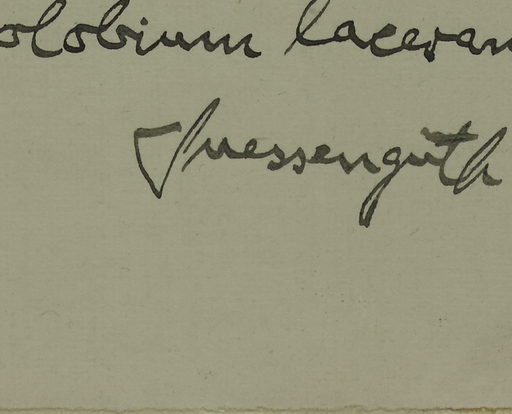 olobium laceran
Suessenguth